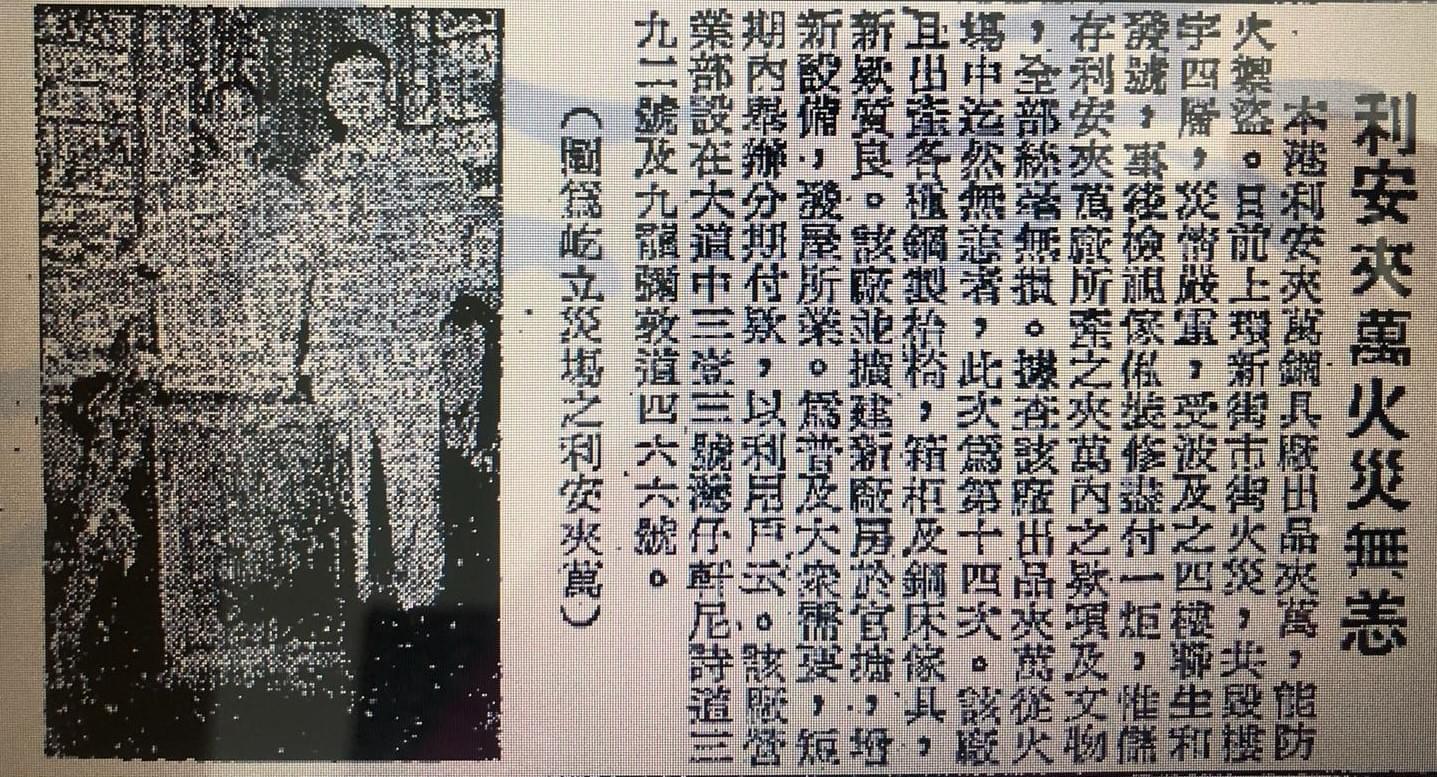 利安夾萬火災無恙
本港利安夾萬鋼具廠出品夾萬,能防
火禦盜。日前上環新街市街火災,共毀樓
宇四層,災情嚴重,受波及之四樓聯生和
發號,事後檢視傢俬裝修盡付一炬,惟儲
存利安夾萬廠所產之夾萬內之欵項及文物
,全部絲毫無損。據查該廠出品夾萬從火
塲中迄然無恙者,此次爲第十四次。該廠
且出產各種鋼製枱椅,箱柜及鋼床傢具,
新欵質良。該廠並擴建新廠房於官塘,增
新設備,發展所業。爲普及大衆需要,短
期內舉辦分期付欵,以利用戶云。該廠營
業部設在大道中三壹三號灣仔軒尼詩道三
九二號及九龍彌敦道四六六號。
(圖爲屹立災塲之利安夾萬)